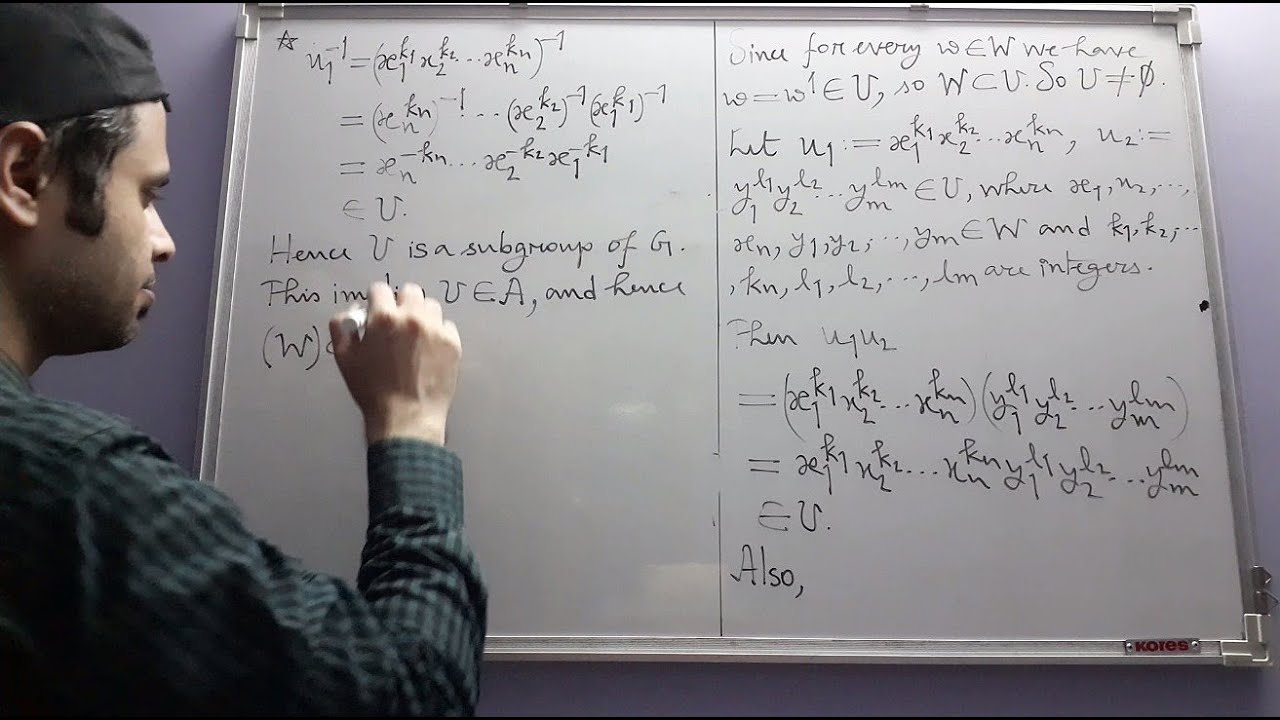 ☆ u₁⁻¹ = (x₁^k₁ x₂^k₂ ... xₙ^kₙ)⁻¹
= (xₙ^kₙ)⁻¹ ... (x₂^k₂)⁻¹ (x₁^k₁)⁻¹
= xₙ^-kₙ ... x₂^-k₂ x₁^-k₁
∈ U.
Hence U is a subgroup of G.
This U ∈ A, and hence
(W)
Since for every w ∈ W we have
w = w¹ ∈ U, so W ⊂ U. So U ≠ ∅.
Let u₁ := x₁^k₁ x₂^k₂ ... xₙ^kₙ, u₂ :=
y₁^l₁ y₂^l₂ ... yₘ^lₘ ∈ U, where x₁, x₂, ...,
xₙ, y₁, y₂, ..., yₘ ∈ W and k₁, k₂, ...
, kₙ, l₁, l₂, ..., lₘ are integers.
Then u₁u₂
= (x₁^k₁ x₂^k₂ ... xₙ^kₙ)(y₁^l₁ y₂^l₂ ... yₘ^lₘ)
= x₁^k₁ x₂^k₂ ... xₙ^kₙ y₁^l₁ y₂^l₂ ... yₘ^lₘ
∈ U.
Also,
KORES